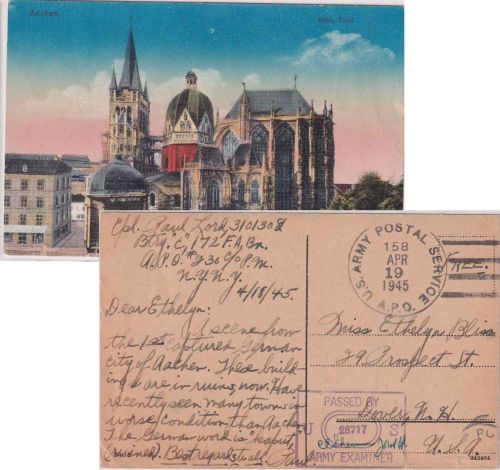 Aachen
Dom, Total
Cpl. Paul Lord, 3101308
Btry. C, 172 F.A. Bn.
A.P.O. #230 c/o P.M.
N.Y. N.Y.
4/18/45.
Dear Ethelyn:
A scene from
the 1st captured German
city of Aachen. These build-
ings are in ruins, now. Have
recently seen many towns in
worse condition than Aachen.
The German word is kaput,
(ruined). Best regards to all,
Paul.
U.S. ARMY POSTAL SERVICE
158
APR
19
1945
A.P.O.
FREE.
Miss Ethelyn Bliss
29 Prospect St.
Dover, N. H.
U.S.A.
PASSED BY
U S
28717
ARMY EXAMINER
PC